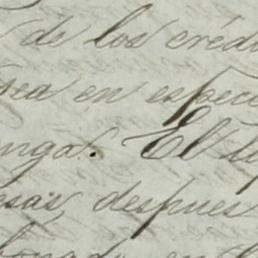 de los crédi
sea en especi
nga. El
esas despues